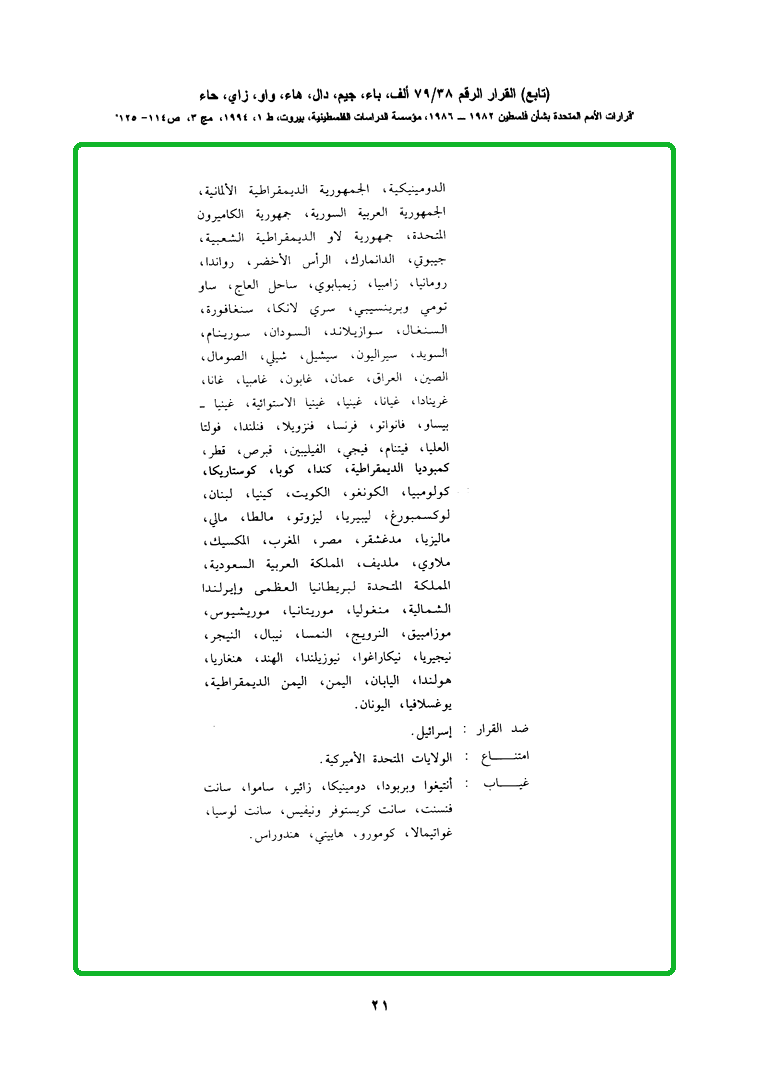 (تابع) القرار الرقم ٧٩/٣٨ ألف، باء، جيم، دال، هاء، واو، زاي، حاء
"قرارات الأمم المتحدة بشأن فلسطين ١٩٨٢ ــ ١٩٨٦، مؤسسة الدراسات الفلسطينية، بيروت، ط ١، ١٩٩٤، مج ٣، ص١١٤- ١٢٥"
الدومينيكية، الجمهورية الديمقراطية الألمانية،
الجمهورية العربية السورية، جمهورية الكاميرون
المتحدة، جمهورية لاو الديمقراطية الشعبية،
جيبوتي، الدانمارك، الرأس الأخضر، رواندا،
رومانيا، زامبيا، زيمبابوي، ساحل العاج، ساو
تومي وبرينسيبي، سري لانكا، سنغافورة،
السنغال، سوازيلاند، السودان، سورينام،
السويد، سيراليون، سيشيل، شيلي، الصومال،
الصين، العراق، عمان، غابون، غامبيا، غانا،
غرينادا، غيانا، غينيا، غينيا الاستوائية، غينيا ـ
بيساو، فانواتو، فرنسا، فنزويلا، فنلندا، فولتا
العليا، فيتنام، فيجي، الفيليبين، قبرص، قطر،
كمبوديا الديمقراطية، كندا، كوبا، كوستاريكا،
كولومبيا، الكونغو، الكويت، كينيا، لبنان،
لوكسمبورغ، ليبيريا، ليزوتو، مالطا، مالي،
ماليزيا، مدغشقر، مصر، المغرب، المكسيك،
ملاوي، ملديف، المملكة العربية السعودية،
المملكة المتحدة لبريطانيا العظمى وإيرلندا
الشمالية، منغوليا، موريتانيا، موريشيوس،
موزامبيق، النرويج، النمسا، نيبال، النيجر،
نيجيريا، نيكاراغوا، نيوزيلندا، الهند، هنغاريا،
هولندا، اليابان، اليمن، اليمن الديمقراطية،
يوغسلافيا، اليونان.
ضد القرار : إسرائيل.
امتنـــــاع : الولايات المتحدة الأميركية.
غيـــــاب : أنتيغوا وبربودا، دومينيكا، زائير، ساموا، سانت
فنسنت، سانت كريستوفر ونيفيس، سانت لوسيا،
غواتيمالا، كومورو، هاييتي، هندوراس.
٢١